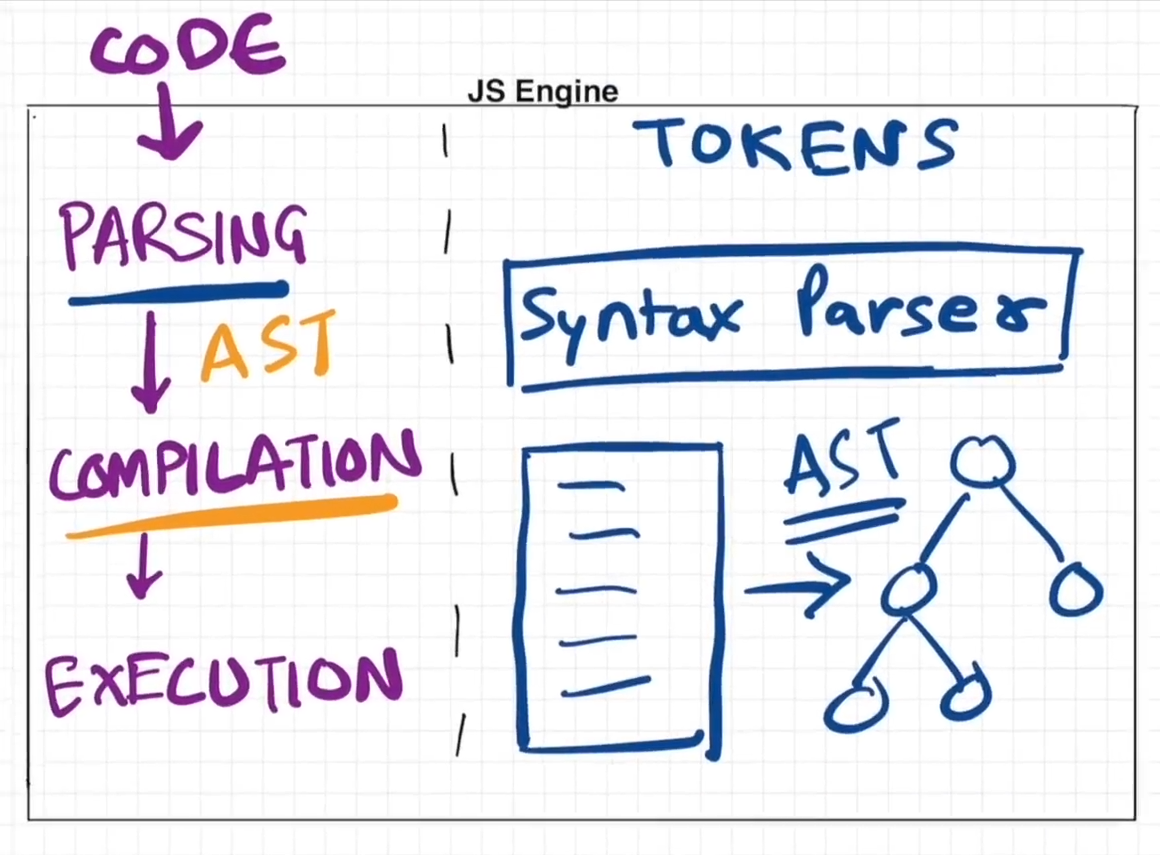 CODE
JS Engine
PARSING
AST
COMPILATION
EXECUTION
TOKENS
Syntax Parser
AST